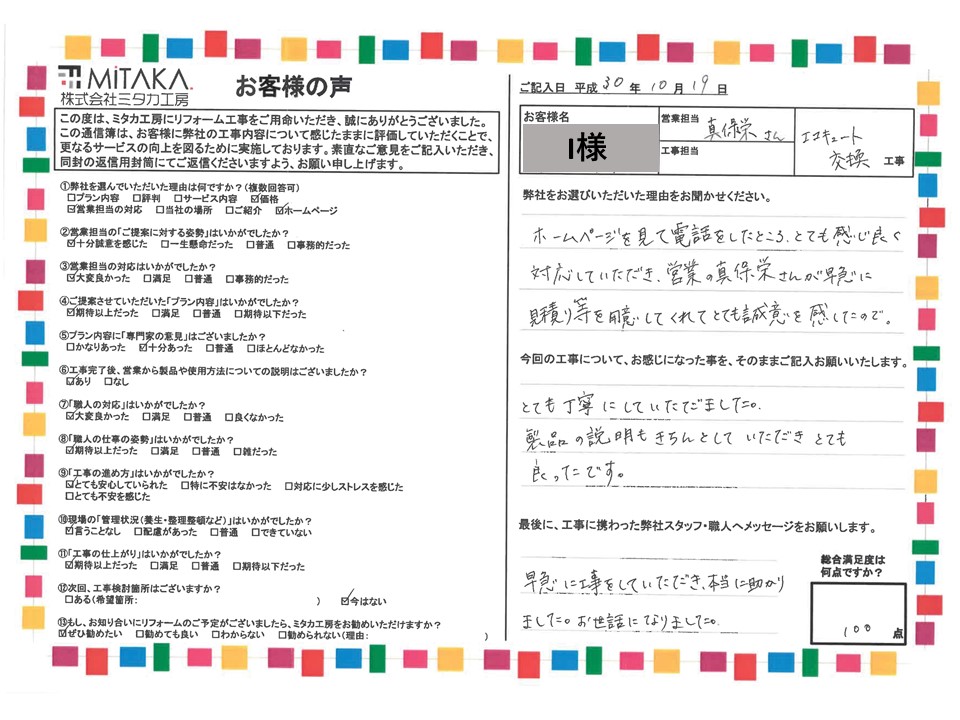 MiTAKA
株式会社ミタカ工房
お客様の声
この度は、ミタカ工房にリフォーム工事をご用命いただき、誠にありがとうございました。
この通信簿は、お客様に弊社の工事内容について感じたままに評価していただくことで、
更なるサービスの向上を図るために実施しております。素直なご意見をご記入いただき、
同封の返信用封筒にてご返信くださいますよう、お願い申し上げます。
①弊社を選んでいただいた理由は何ですか？（複数回答可）
□プラン内容 □評判 □サービス内容 ☑価格
☑営業担当の対応 □当社の場所 □ご紹介 ☑ホームページ
②営業担当の「ご提案に対する姿勢」はいかがでしたか？
☑十分誠意を感じた □一生懸命だった □普通 □事務的だった
③営業担当の対応はいかがでしたか？
☑大変良かった □満足 □普通 □事務的だった
④ご提案させていただいた「プラン内容」はいかがでしたか？
☑期待以上だった □満足 □普通 □期待以下だった
⑤プラン内容に「専門家の意見」はございましたか？
□かなりあった ☑十分あった □普通 □ほとんどなかった
⑥工事完了後、営業から製品や使用方法についての説明はございましたか？
☑あり □なし
⑦「職人の対応」はいかがでしたか？
☑大変良かった □満足 □普通 □良くなかった
⑧「職人の仕事の姿勢」はいかがでしたか？
☑期待以上だった □満足 □普通 □雑だった
⑨「工事の進め方」はいかがでしたか？
☑とても安心していられた □特に不安はなかった □対応に少しストレスを感じた
□とても不安を感じた
⑩現場の「管理状況（養生・整理整頓など）」はいかがでしたか？
☑言うことなし □配慮があった □普通 □できていない
⑪「工事の仕上がり」はいかがでしたか？
☑期待以上だった □満足 □普通 □期待以下だった
⑫次回、工事検討箇所はございますか？
□ある（希望箇所： ） ☑今はない
⑬もし、お知り合いにリフォームのご予定がございましたら、ミタカ工房をお勧めいただけますか？
☑ぜひ勧めたい □勧めても良い □わからない □勧められない（理由： ）
ご記入日 平成 30 年 10 月 19 日
お客様名
I様
営業担当 真保栄さん
工事担当
エコキュート
交換 工事
弊社をお選びいただいた理由をお聞かせください。
ホームページを見て電話をしたところ、とても感じ良く
対応していただき、営業の真保栄さんが早急に
見積り等を用意してくれてとても誠意を感したので。
今回の工事について、お感じになった事を、そのままご記入お願いいたします。
とても丁寧にしていただきました。
製品の説明もきちんとしていただきとても
良ったです。
最後に、工事に携わった弊社スタッフ・職人へメッセージをお願いします。
早急に工事をしていただき、本当に助かり
ました。お世話になりました。
総合満足度は
何点ですか？
100 点